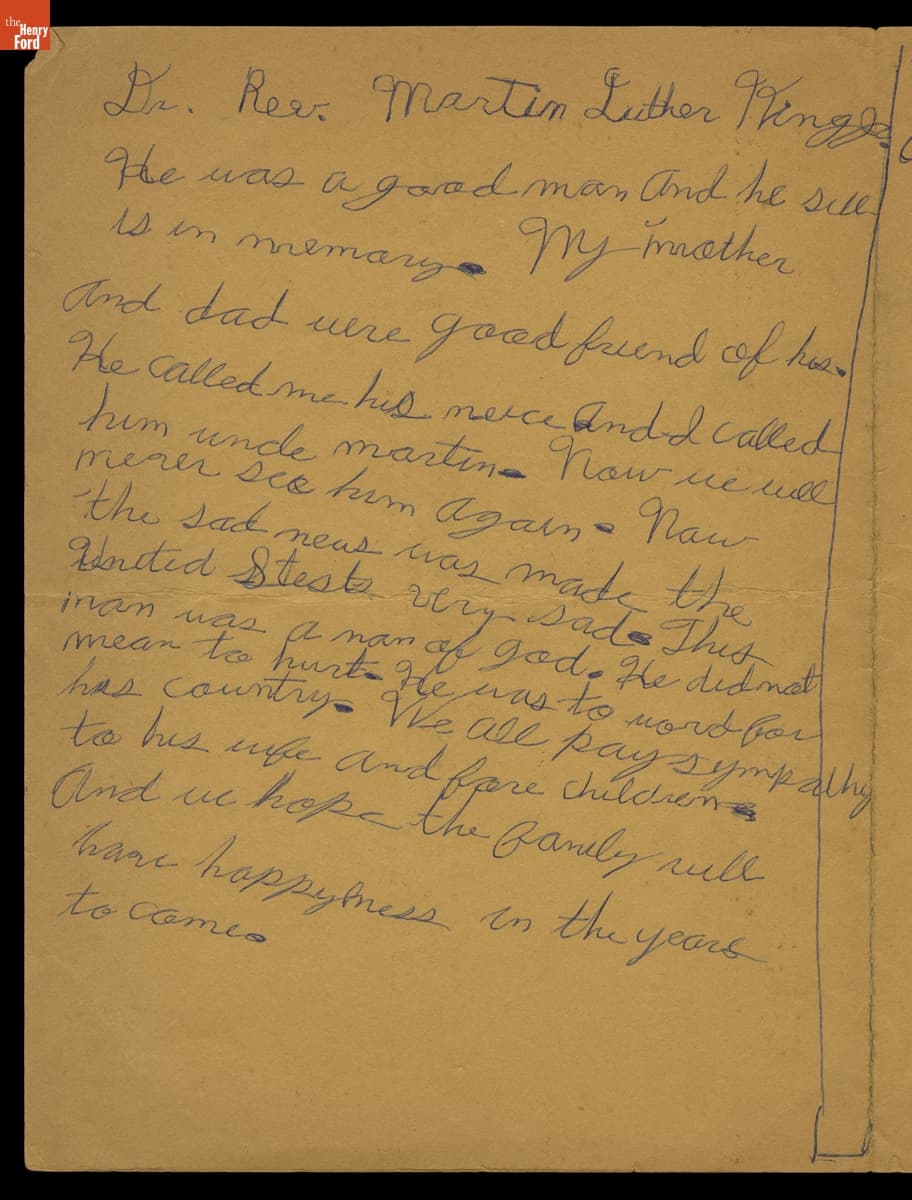 the
Henry
Ford
Dr. Rev. Martin Luther King Jr.
He was a good man And he sill
is in memary. My mother
And dad were good friend of his.
He called me his neice And I called
him uncle martin. Now we will
never see him Again. Naw
the sad news was made the
United Stests very sad. This
man was a nan of god. He did not
mean to hurt. He was to word for
his country. We All pay sympathy
to his wife and fore children.
And we hope the family will
have happyness in the years
to come.